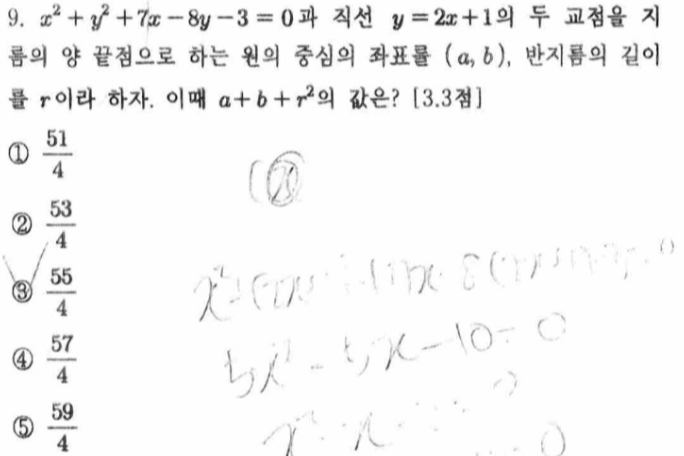 9. x² + y² + 7x − 8y − 3 = 0과 직선 y = 2x + 1의 두 교점을 지
름의 양 끝점으로 하는 원의 중심의 좌표를 (a, b), 반지름의 길이
를 r이라 하자. 이때 a + b + r²의 값은? [3.3점]
① 51/4
② 53/4
③ 55/4
④ 57/4
⑤ 59/4
5x² - 5x - 10 = 0